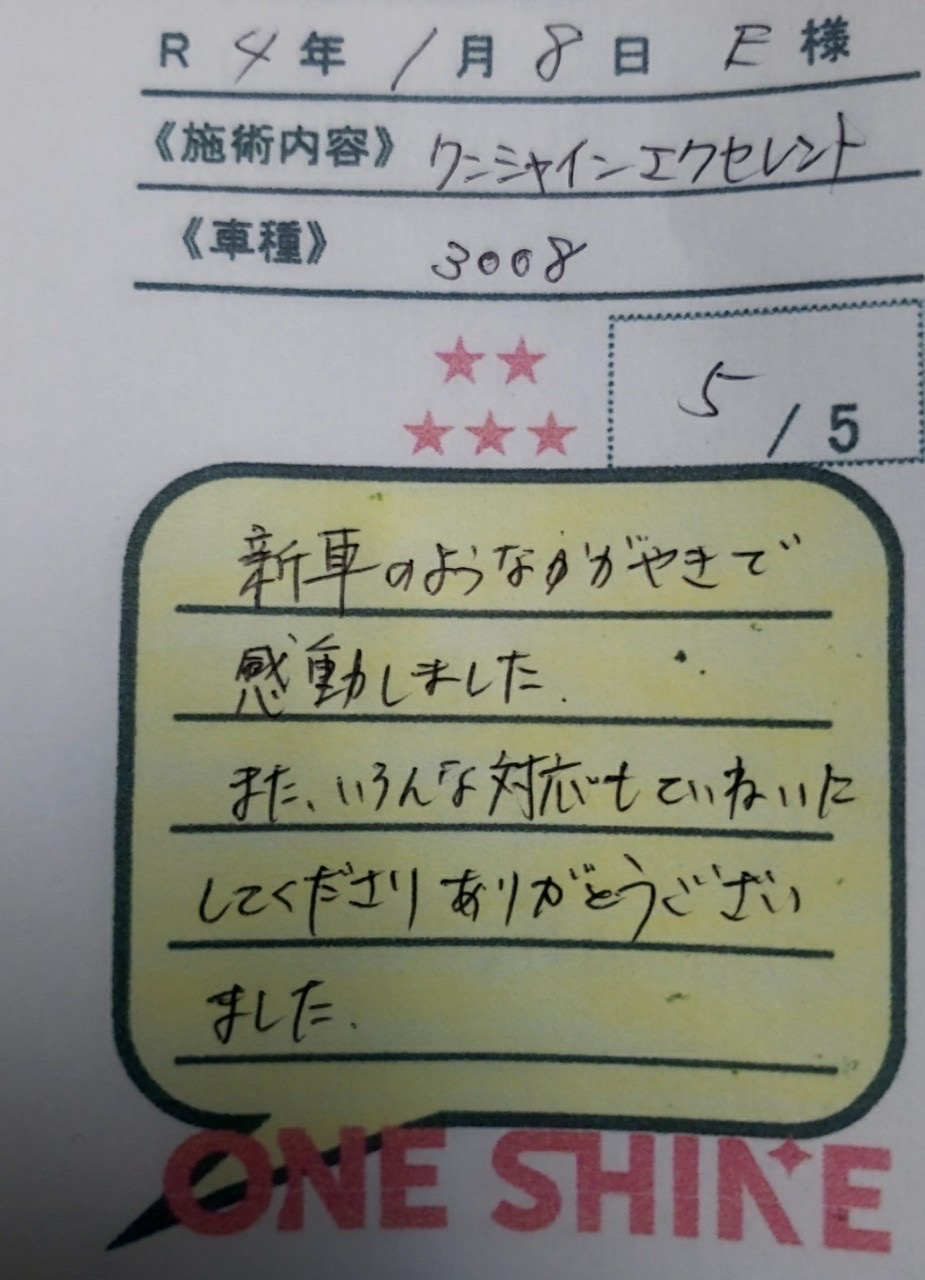 R 4年 1月 8日 E様
《施術内容》 ワンシャインエクセレント
《車種》 3008
★★
★★★
5/5
新車のようなかがやきで
感動しました.
また、いろんな対応もていねいに
してくださりありがとうござい
ました.
ONE SHINE